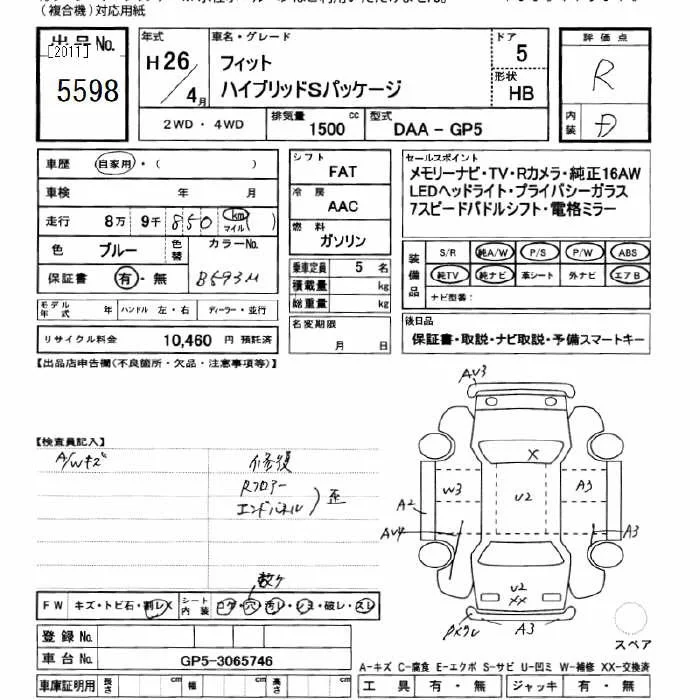 (複合機)対応用紙
出品No.
[201T]
5598
年式
H26/4月
車名・グレード
フィット
ハイブリッドSパッケージ
ドア
5
形状
HB
評価点
R
内装
D
2WD・4WD
排気量
1500 cc
型式
DAA-GP5
車歴 自家用・( )
車検 年 月
走行 8万 9千 850 km マイル ( )
色 ブルー 色替 カラーNo.
保証書 有・無 B593M
モデル年式 年 ハンドル 左・右 ディーラー・並行
リサイクル料金 10,460 円 預託済
シフト
FAT
冷房
AAC
燃料
ガソリン
乗車定員 5 名
積載量 kg
総重量 kg
名変期限
月 日
セールスポイント
メモリーナビ・TV・Rカメラ・純正16AW
LEDヘッドライト・プライバシーガラス
7スピードパドルシフト・電格ミラー
装備品
S/R 純A/W P/S P/W ABS
純TV 純ナビ 革シート 外ナビ エアB
ナビ型番:
後日品
保証書・取説・ナビ取説・予備スマートキー
【出品店申告欄(不良箇所・欠品・注意事項等)】
【検査員記入】
A/Wキズ
修復
Rフロアー
エンドパネル
歪
AV3
X
W3
U2
A3
A2
AV4
A3
U2
XX
A3
スペア
数ヶ
FW キズ・トビ石・割レX シート内装 コゲ・穴・汚レ・シミ・破レ・スレ
登録No.
車台No. GP5-3065746
車庫証明用 長さ cm 幅 cm 高さ cm
A-キズ C-腐食 E-エクボ S-サビ U-凹ミ W-補修 XX-交換済
工具 有・無 ジャッキ 有・無